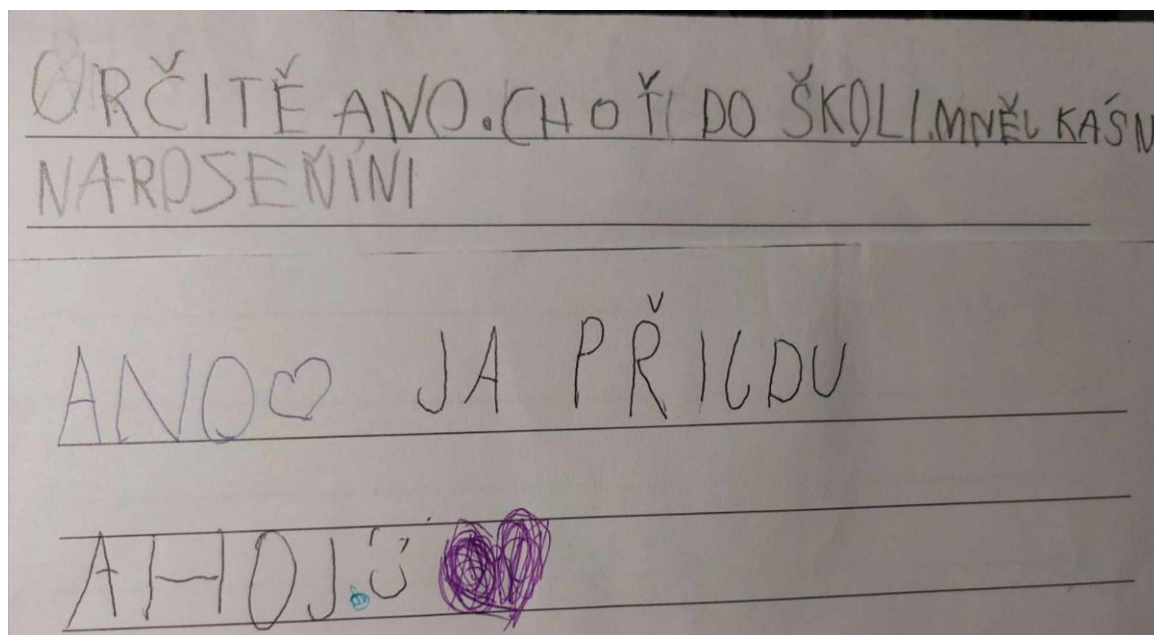 URČITĚ ANO. CHOŤI DO ŠKOLI. MNĚL KÁSN
NAROSEŇÍNI
ANO♡ JA PŘIJDU
AHOJ.